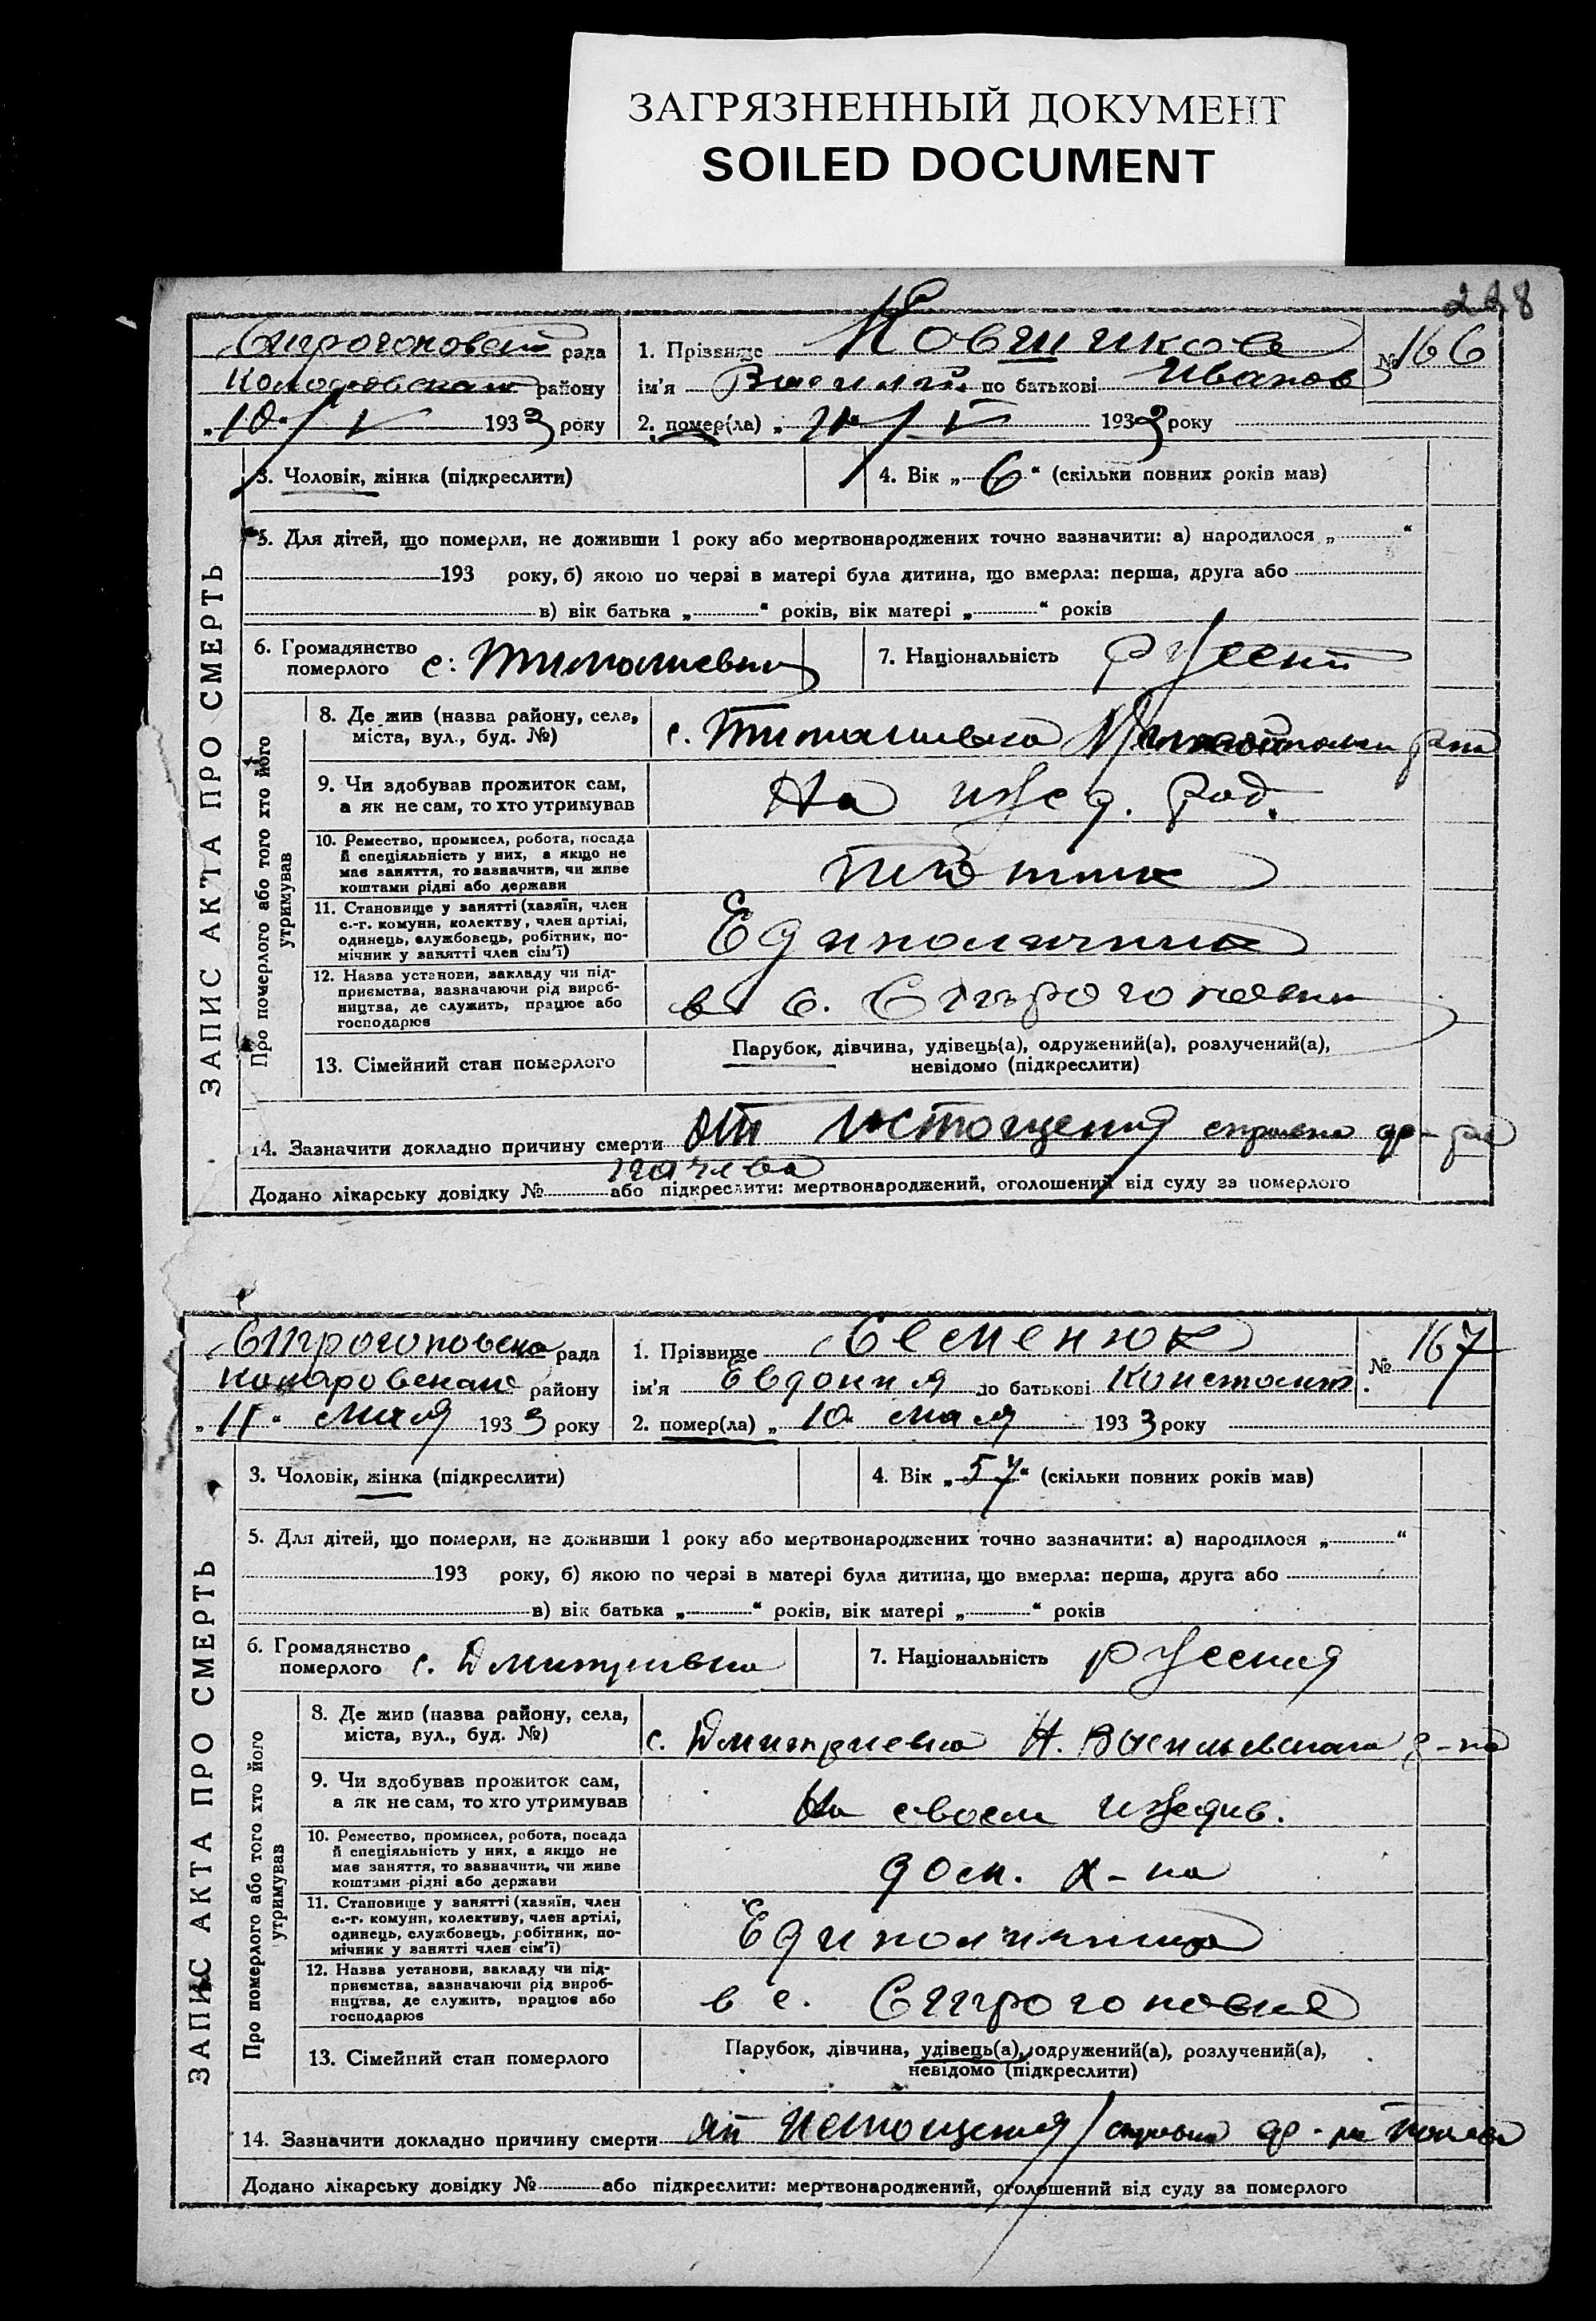 ЗАГРЯЗНЕННЫЙ ДОКУМЕНТ
SOILED DOCUMENT
228
рада
району
„10" / V 1933 року
1. Прізвище Ковшикова № 166
ім'я Василий по батькові Иванов
2. помер(ла) „ / V 1933 року
3. Чоловік, жінка (підкреслити)
4. Вік „6" (скільки повних років мав)
5. Для дітей, що померли, не доживши 1 року або мертвонароджених точно зазначити: а) народилося „ "
193 року, б) якою по черзі в матері була дитина, що вмерла: перша, друга або
в) вік батька „ " років, вік матері „ " років
6. Громадянство
померлого с. Тимошевка
7. Національність русский
ЗАПИС АКТА ПРО СМЕРТЬ
Про померлого або того хто його
утримував
8. Де жив (назва району, села,
міста, вул., буд. №)
с. Тимашевка
9. Чи здобував прожиток сам,
а як не сам, то хто утримував
На ижд. род.
10. Ремество, промисел, робота, посада
й спеціяльність у них, а якщо не
має заняття, то зазначити, чи живе
коштами рідні або держави
плотник
11. Становище у занятті (хазяїн, член
с.-г. комуни, колективу, член артілі,
одинець, службовець, робітник, по-
мічник у занятті член сім'ї)
Единоличник
12. Назва установи, закладу чи під-
приємства, зазначаючи рід вироб-
ництва, де служить, працює або
господарює
в с. Строгоновки
13. Сімейний стан померлого
Парубок, дівчина, удівець(а), одружений(а), розлучений(а),
невідомо (підкреслити)
14. Зазначити докладно причину смерти от истощения справка др-ра
Додано лікарську довідку № або підкреслити: мертвонароджений, оголошений від суду за померлого
Строгоновска рада
району
„11" мая 1933 року
1. Прізвище Семенюк № 167
ім'я Евдокия по батькові Констант.
2. помер(ла) „10 мая 1933 року
3. Чоловік, жінка (підкреслити)
4. Вік „57" (скільки повних років мав)
5. Для дітей, що померли, не доживши 1 року або мертвонароджених точно зазначити: а) народилося „ "
193 року, б) якою по черзі в матері була дитина, що вмерла: перша, друга або
в) вік батька „ " років, вік матері „ " років
6. Громадянство
померлого с. Дмитривка
7. Національність русская
ЗАПИС АКТА ПРО СМЕРТЬ
Про померлого або того хто його
утримував
8. Де жив (назва району, села,
міста, вул., буд. №)
с. Дмитриевка Н. Васильевскага р-на
9. Чи здобував прожиток сам,
а як не сам, то хто утримував
На своем иждив.
10. Ремество, промисел, робота, посада
й спеціяльність у них, а якщо не
має заняття, то зазначити, чи живе
коштами рідні або держави
дом. х-ка
11. Становище у занятті (хазяїн, член
с.-г. комуни, колективу, член артілі,
одинець, службовець, робітник, по-
мічник у занятті член сім'ї)
Единоличница
12. Назва установи, закладу чи під-
приємства, зазначаючи рід вироб-
ництва, де служить, працює або
господарює
в с. Строгоновка
13. Сімейний стан померлого
Парубок, дівчина, удівець(а), одружений(а), розлучений(а),
невідомо (підкреслити)
14. Зазначити докладно причину смерти от истощения / справка др-ра
Додано лікарську довідку № або підкреслити: мертвонароджений, оголошений від суду за померлого